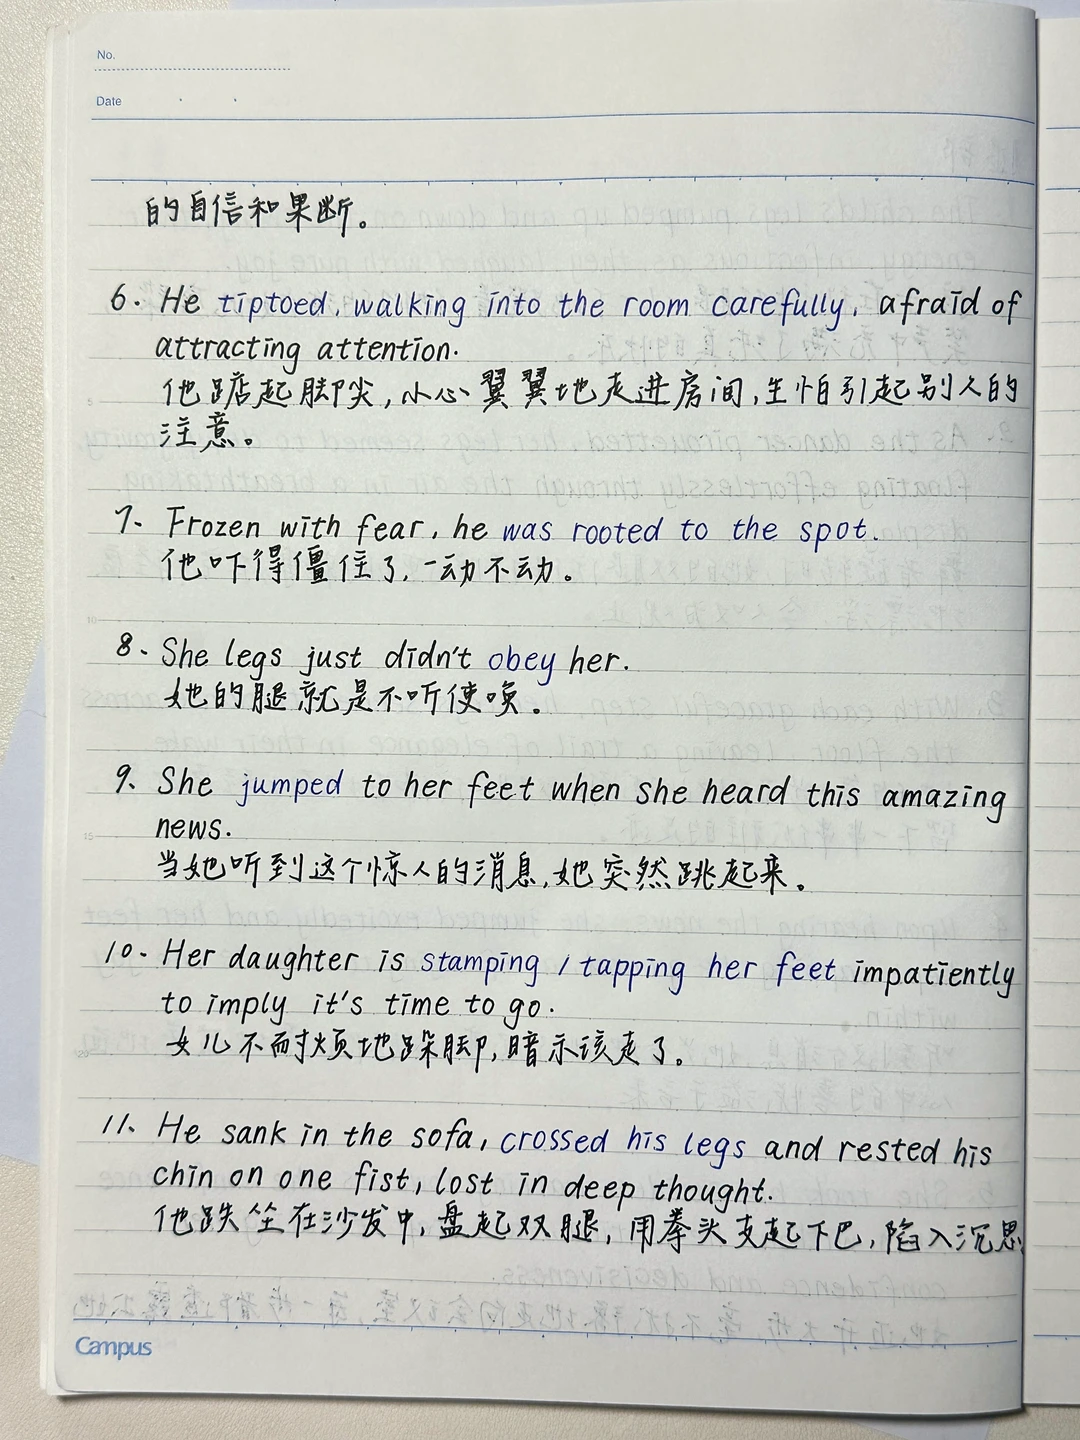 No.
Date
的自信和果断。
6. He tiptoed, walking into the room carefully, afraid of
attracting attention.
他踮起脚尖,小心翼翼地走进房间,生怕引起别人的
注意。
7. Frozen with fear, he was rooted to the spot.
他吓得僵住了,一动不动。
8. She legs just didn't obey her.
她的腿就是不听使唤。
9. She jumped to her feet when she heard this amazing
news.
当她听到这个惊人的消息,她突然跳起来。
10. Her daughter is stamping / tapping her feet impatiently
to imply it's time to go.
女儿不耐烦地跺脚,暗示该走了。
11. He sank in the sofa, crossed his legs and rested his
chin on one fist, lost in deep thought.
他跌坐在沙发中,盘起双腿,用拳头支起下巴,陷入沉思
Campus